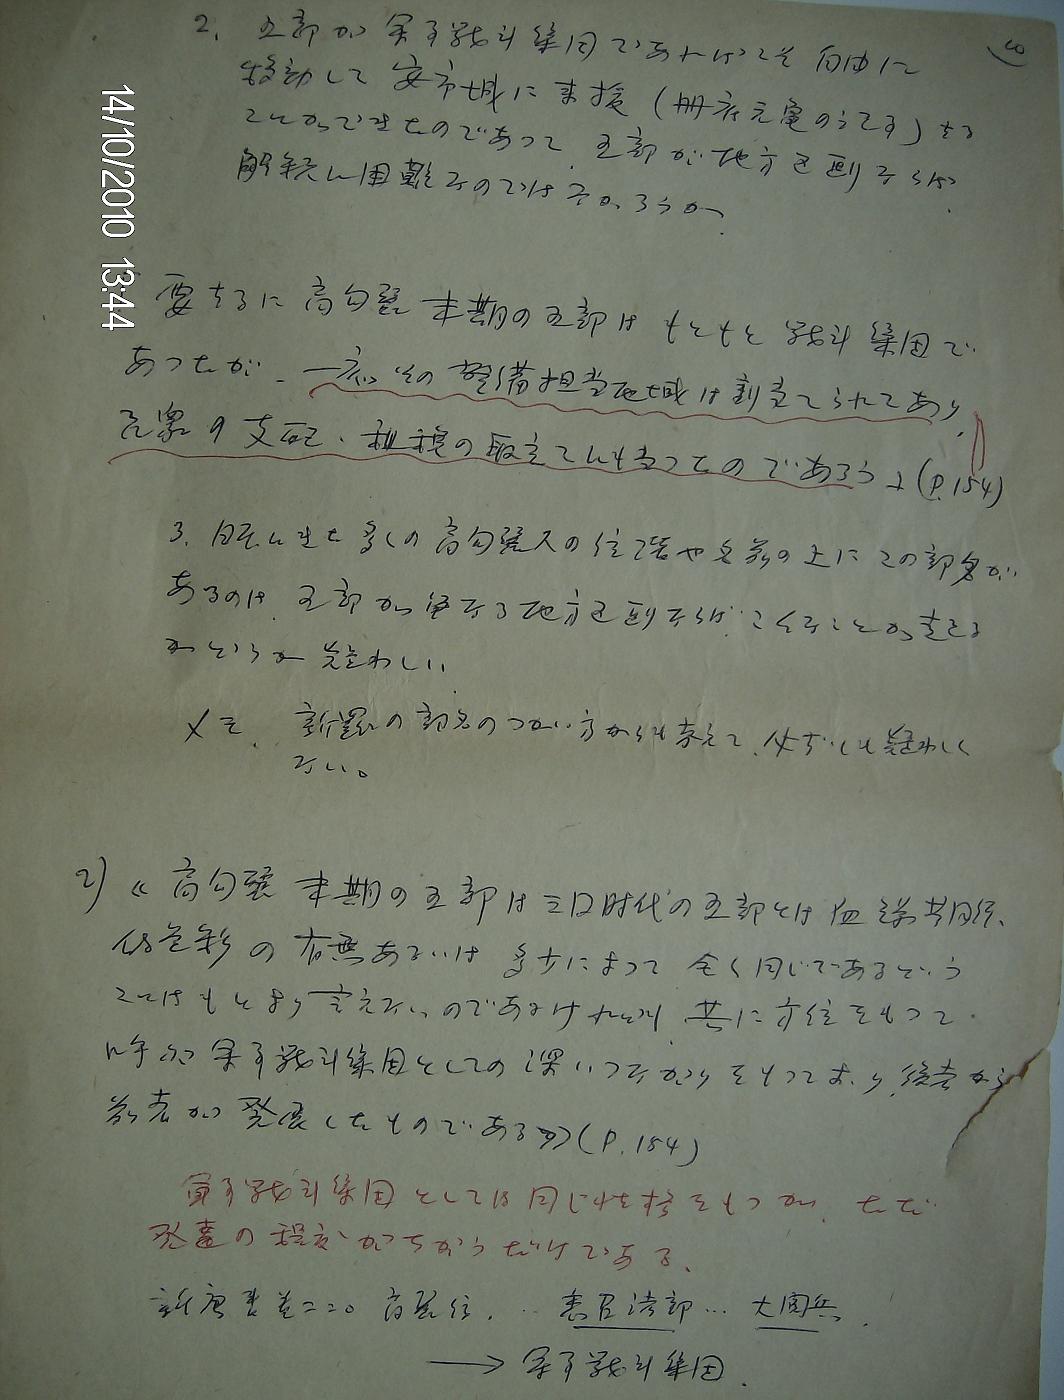 2. 五部が軍事戦斗集団であればこそ自由に
移動して安市城に来援(册府元亀のうてず)する
ことができたのであって、五部が地方区画ならば
解釈に困難なのではなかろうか。
要するに高句麗末期の五部はもともと戦斗集団で
あったが、一応その警備担当地域は割当てられてあり、
民衆の支配、租税の取立てにも当ったのであろう」(P.184)
3. 日本に来た多くの高句麗人の位階や名前の上にこの部名が
あるのは、五部が単なる地方区画ならば、こんなことが言える
かどうか疑わしい。
メモ. 新羅の部名のつかい方からも考えて、必ずしも疑わしく
ない。
2) 《高句麗末期の五部は三国时代の五部とは血縁共同体、
的色彩の有無あるいは多少によって全く同じであるという
ことはもとより言えないのであるけれども、共に方位をもって
軍事戦斗集団としての深いつながりをもっており、後者から
前者が発展したものである》(P.184)
軍事戦斗集団としては同じ性格をもつが、ただ
発達の程度がちがうだけである。
新唐書巻二二〇 高麗伝. … 悉召諸部… 大閲兵.
→ 軍事戦斗集団.
14/10/2010 13:44